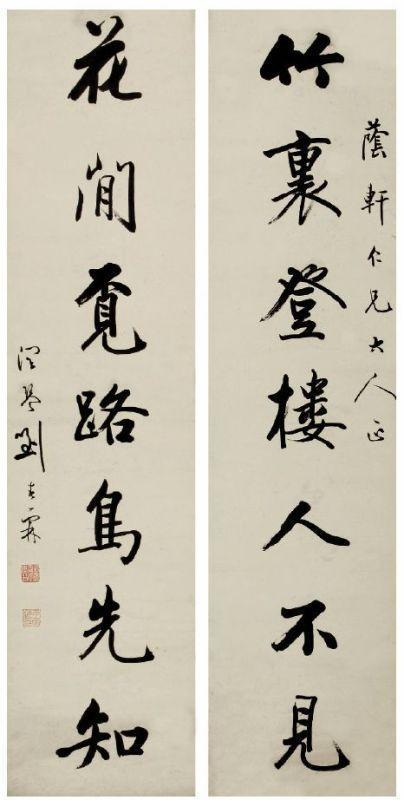 蔭軒仁兄大人正
竹裏登樓人不見
花閒覓路鳥先知
潤琴劉春霖